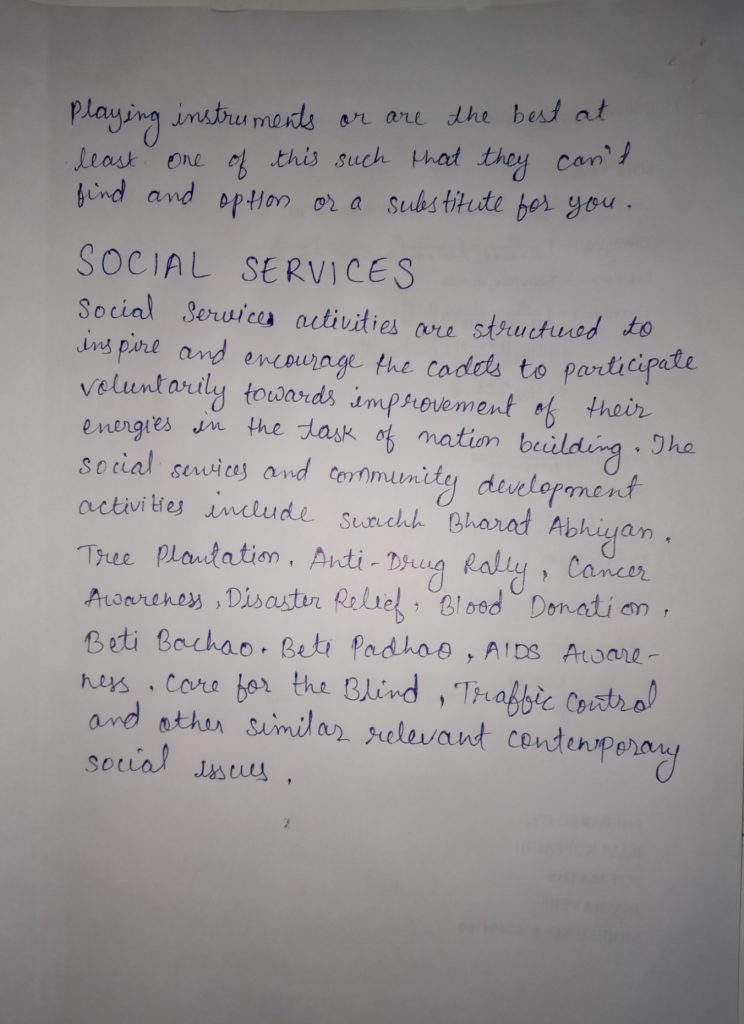 Playing instruments or are the best at
least one of this such that they can't
find and option or a substitute for you.
SOCIAL SERVICES
Social Services activities are structured to
inspire and encourage the cadets to participate
voluntarily towards improvement of their
energies in the task of nation building. The
social services and community development
activities include swachh Bharat Abhiyan,
Tree Plantation, Anti-Drug Rally, Cancer
Awareness, Disaster Relief, Blood Donation,
Beti Bachao. Beti Padhao, AIDS Aware-
ness. Care for the Blind, Traffic Control
and other similar relevant contemporary
social issues.
2